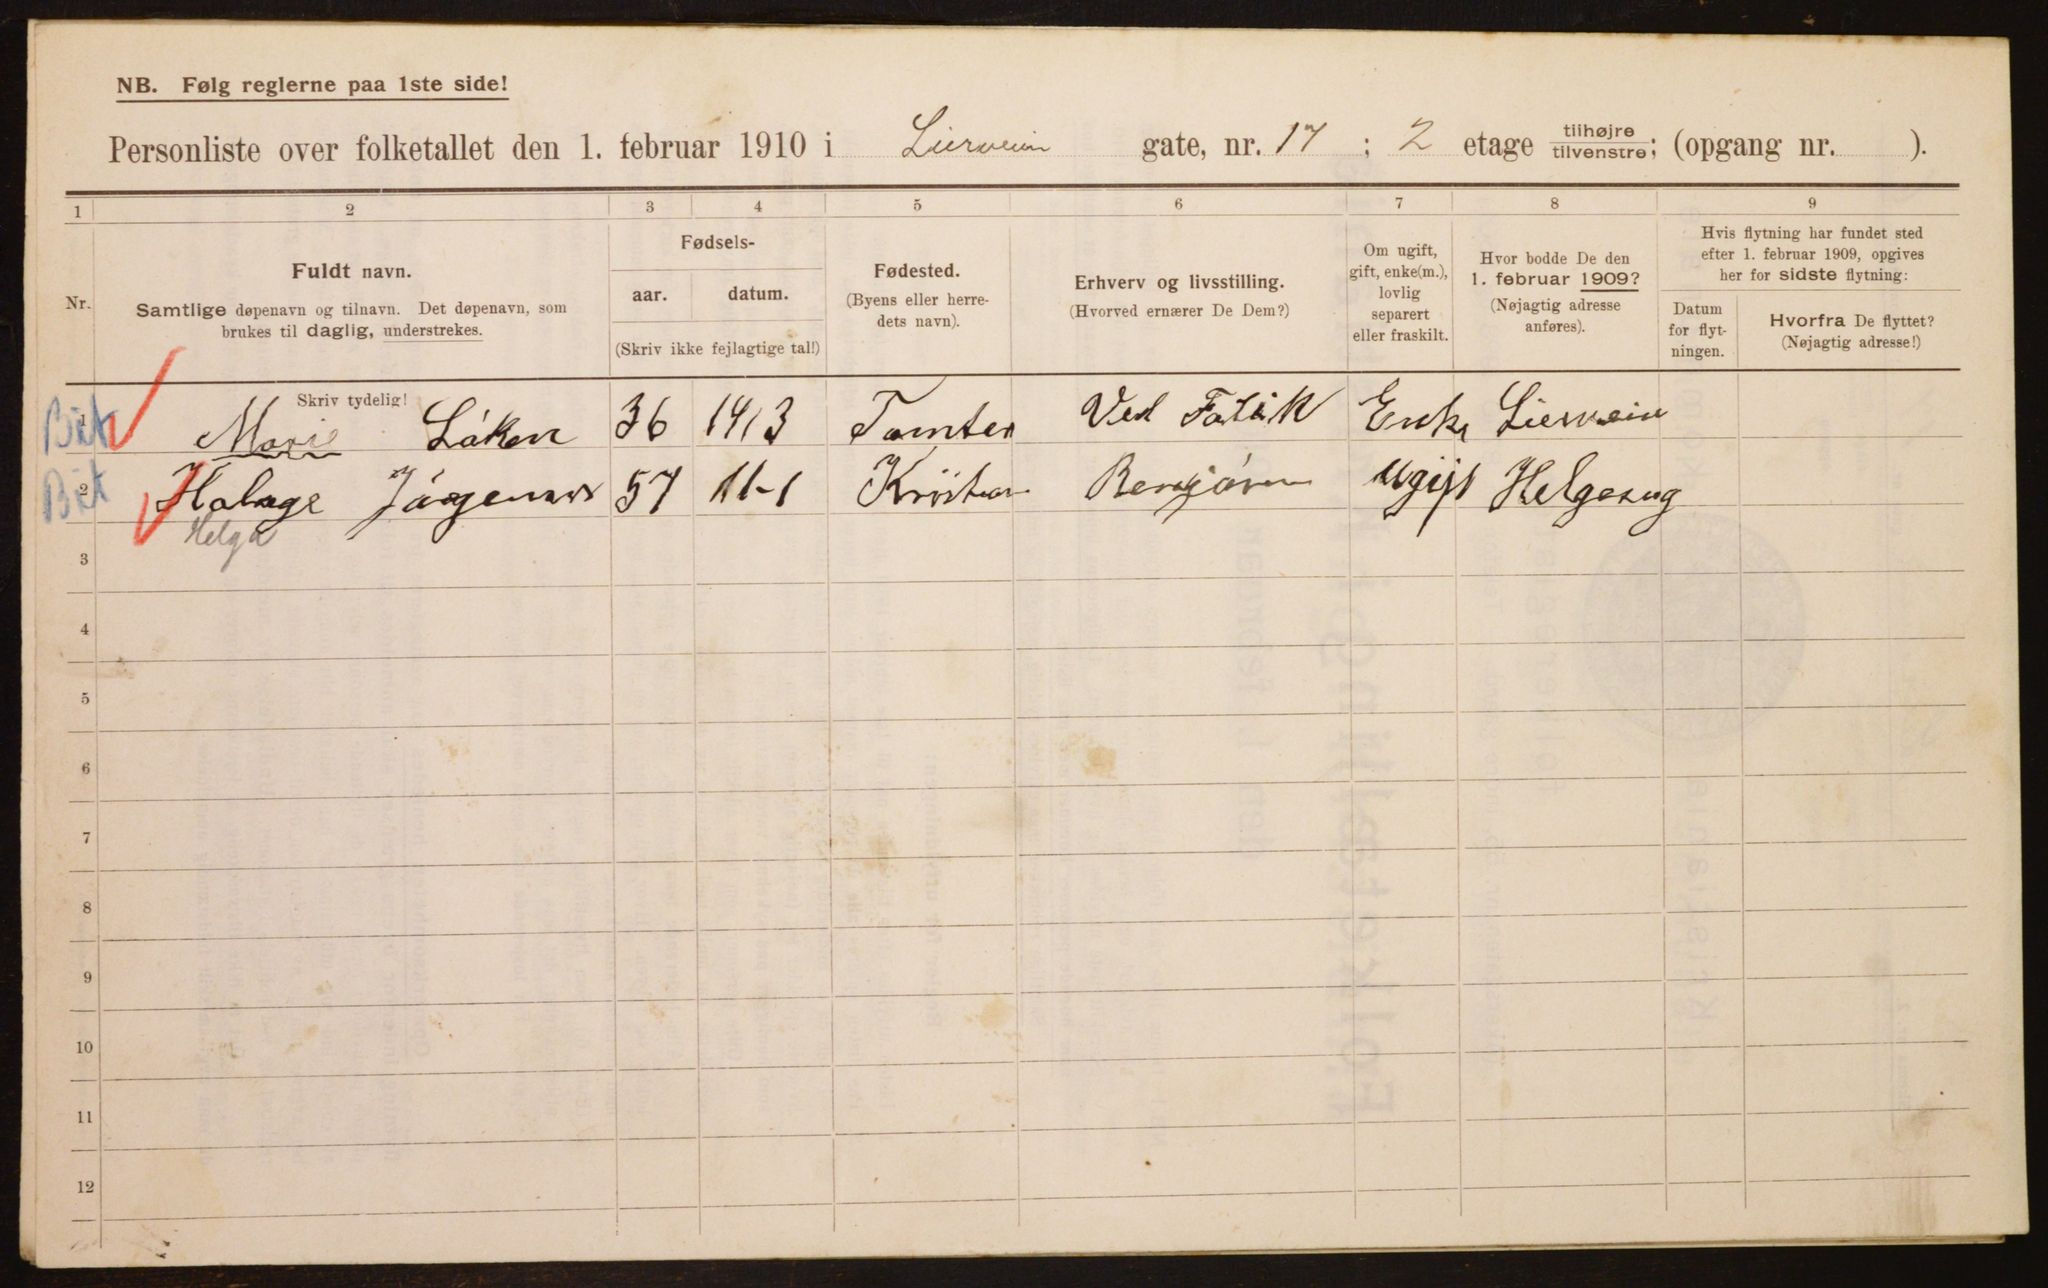 NB. Følg reglerne paa 1ste side!
Personliste over folketallet den 1. februar 1910 i Lierveien gate, nr. 17 ; 2 etage tilhøjre tilvenstre; (opgang nr. ).
1 2 3 4 5 6 7 8 9
Nr.
Fuldt navn.
Samtlige døpenavn og tilnavn. Det døpenavn, som
brukes til daglig, understrekes.
Fødsels-
aar. datum.
(Skriv ikke fejlagtige tal!)
Fødested.
(Byens eller herre-
dets navn).
Erhverv og livsstilling.
(Hvorved ernærer De Dem?)
Om ugift,
gift, enke(m.),
lovlig
separert
eller fraskilt.
Hvor bodde De den
1. februar 1909?
(Nøjagtig adresse
anføres).
Hvis flytning har fundet sted
efter 1. februar 1909, opgives
her for sidste flytning:
Datum
for flyt-
ningen.
Hvorfra De flyttet?
(Nøjagtig adresse!)
Skriv tydelig!
1 Marie Løken 36 14/3 Tomter Ved Fabrik Enke Lierveien
2 Jørgensen 57 11-1 Kristian Ugift Helgesensg
Helga
3
4
5
6
7
8
9
10
11
12